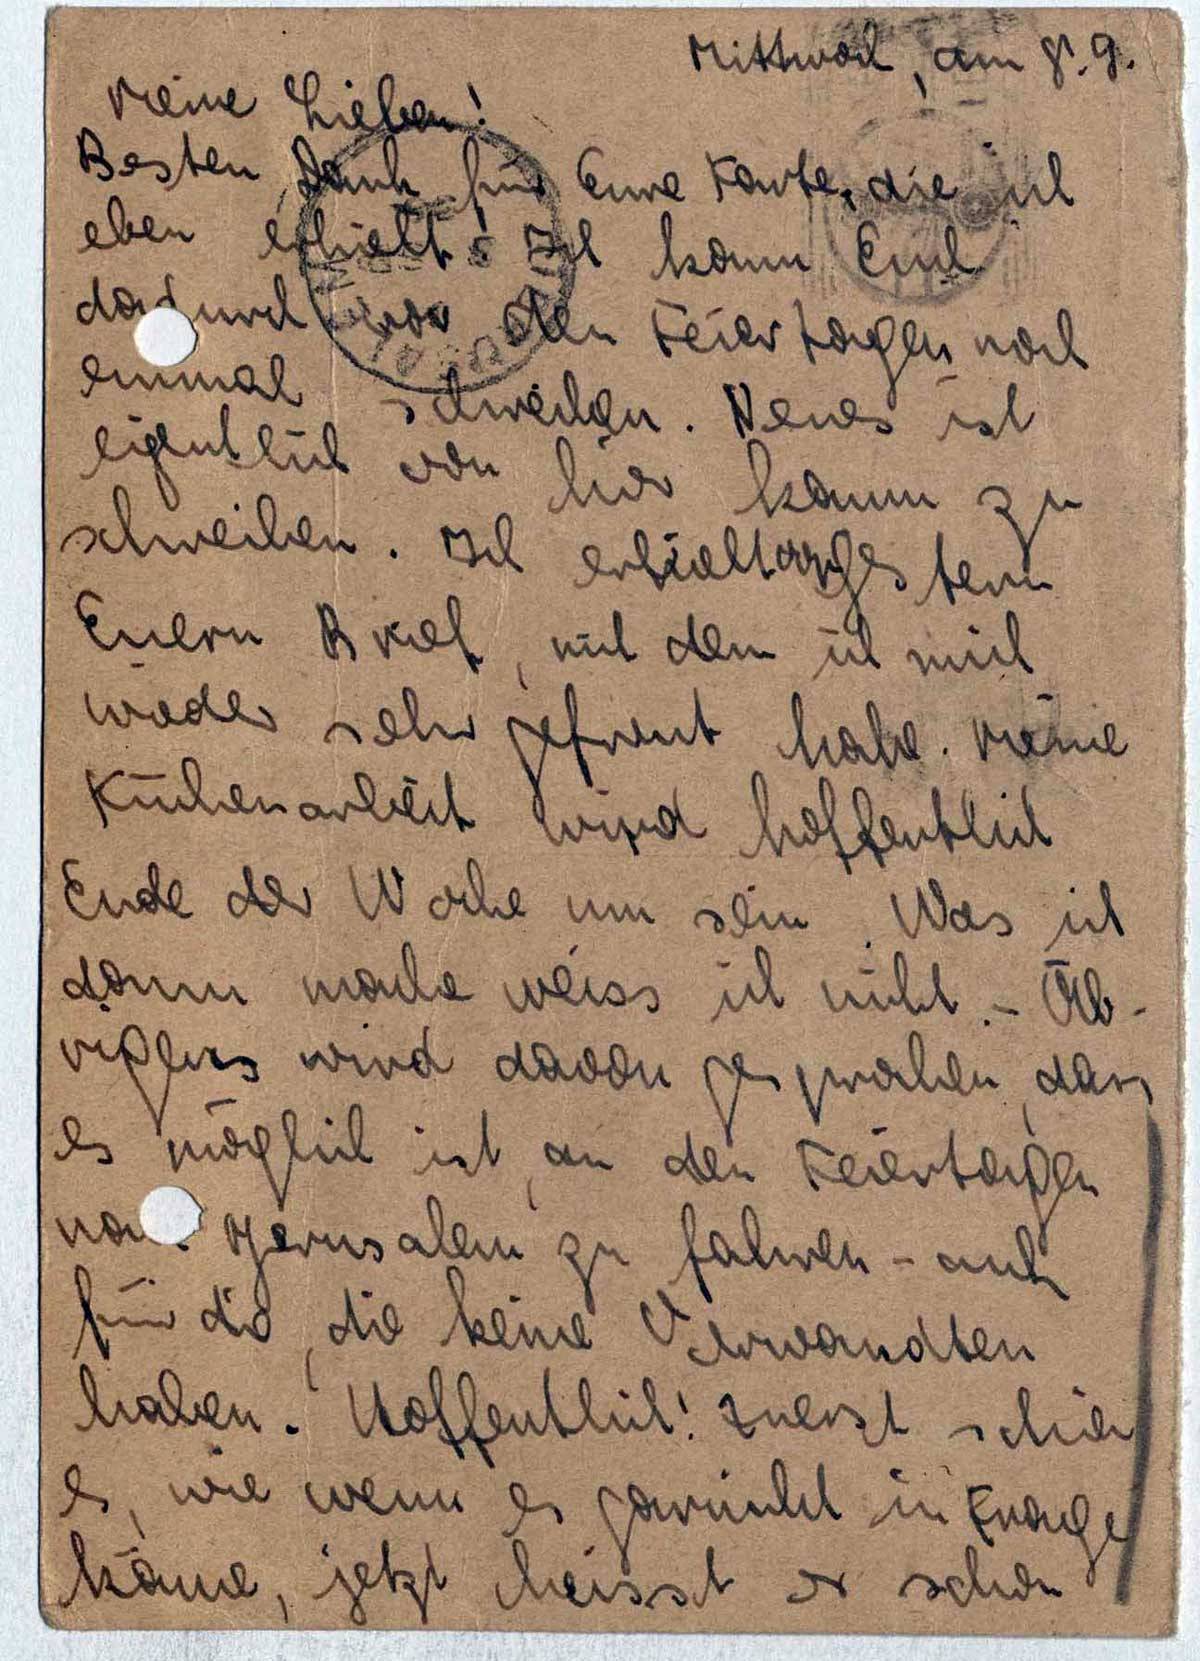 Mittwoch, am 8.9.
Meine Lieben!
Besten Dank für Eure Karte, die ich
eben erhielt. Ich kann Euch
dadurch vor den Feiertagen noch
einmal schreiben. Neues ist
eigentlich von hier kaum zu
schreiben. Ich erhielt gestern
Euern Brief, mit dem ich mich
wieder sehr gefreut habe. Meine
Küchenarbeit wird hoffentlich
Ende der Woche um sein. Was ich
dann mache weiss ich nicht. - Üb-
rigens wird davon gesprochen, dass
es möglich ist, an den Feiertagen
nach Jerusalem zu fahren - auch
für die, die keine Verwandten
haben. Hoffentlich! Zuerst schien
es, wie wenn es garnicht in Frage
käme, jetzt heisst es schon